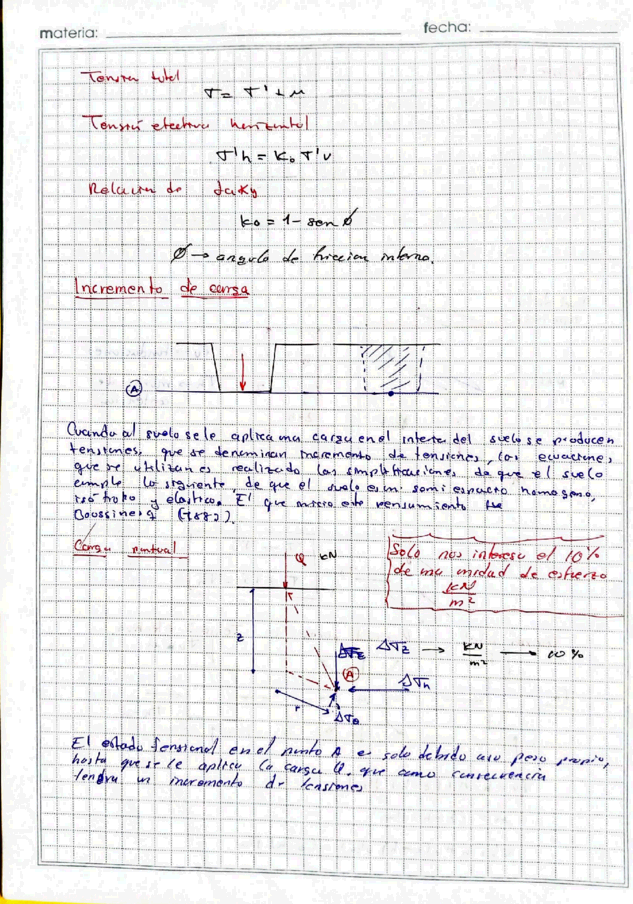 materia:
fecha:
Tension total
σ = σ' + μ
Tensión efectiva horizontal
σ'h = K₀ σ'v
Relacion de Jaky
k₀ = 1 - sen Ø
Ø → angulo de friccion interna.
Incremento de carga
A
Cuando al suelo se le aplica una carga en el interior del suelo se producen
tensiones, que se denominan incremento de tensiones, las ecuaciones
que se utilizan es realizado las simplificaciones de que el suelo
cumple lo siguiente, de que el suelo es un semi espacio homogeno,
isótropo y elastico. El que inicio este pensamiento fue
Boussinesq (1883).
Carga puntual
Q kN
Solo nos interesa el 10%
de una unidad de esfuerzo
kN
m²
z
Δσz → kN/m² → 10%
A
Δσr
r
Δσθ
El estado tensional en el punto A es solo debido a su peso propio,
hasta que se le aplica la carga Q, que como consecuencia
tendra un incremento de tensiones